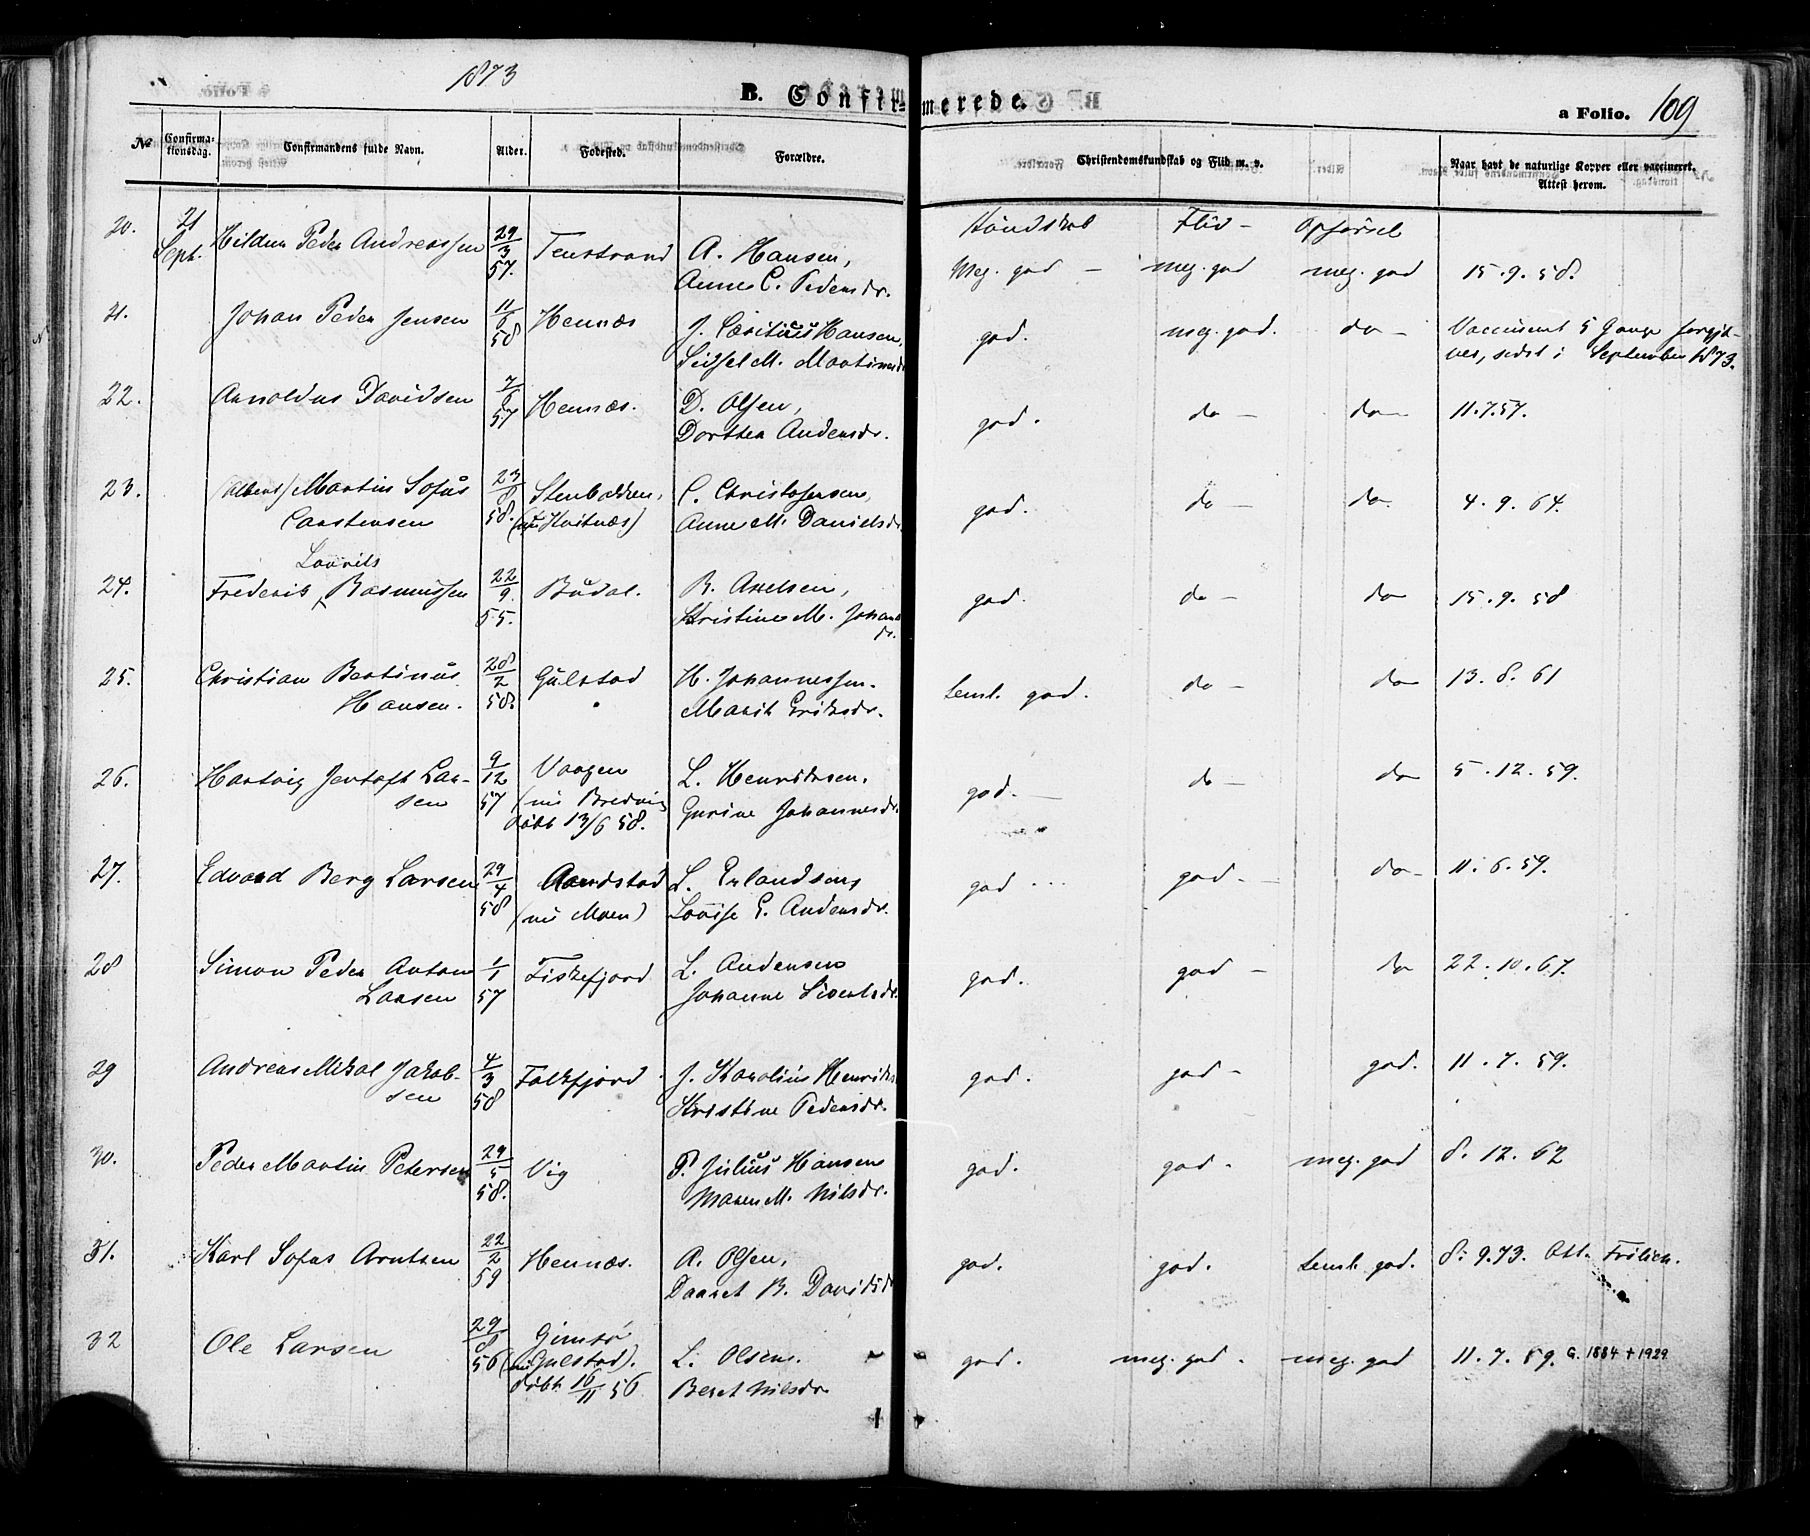 1873
B. Confirmerede.
a Folio. 109
No Confirmationsdag. Confirmandens fulde Navn. Alder. Fødested. Forældre. Christendomskundskab og Flid m. v. Naar havt de naturlige Kopper eller vaccineret. Attest herom.
Kundskab Flid - Opførsel
20. 21 Sept. Hildur Peder Andreassen 29/3 57. Tenstrand A. Hansen,
Anne C. Pedersdr. Meg. god - meg. god meg. god 15.9.58.
21. Johan Peder Jensen 11/6 58 Hennæs J. Hansen,
Sidsel M. Martinsdr. god. meg. god. do - Vaccineret 5 Gange forgjæ-
ves, sidst i September 1873.
22. Arnoldus Davidsen 7/6 57 Hennæs. D. Olsen,
Dorthea Andersdr. god. do - do - 11.7.57.
23. (Albert) Martin Sofus 23/8 58. Stenbakken, C. Christofersen,
Carstensen (nu Kvitnæs) Anne M. Danielsdr. god. do - do 4.9.64.
Lauvits
24. Frederik Rasmussen 22/9 55. Budal. R. Axelsen,
Kristine M. Johansdr. god. do - do 15.9.58
25. Christian Bertinus 28/2 58. Gulstad H. Johannessen.
Hansen. Marit Eriksdr. teml. god. do - do 13.8.61
26. Hartvig Jentoft Lar- 9/12 57 Vaagen L. Henriksen.
sen (nu Bredvig Gurine Johannesdr. god. - do - do 5.12.59.
døbt 13/6 58.
27. Edvard Berg Larsen 29/4 58 Aandstad L. Erlandsen,
(nu Moen) Lovise E. Andersdr. god god - do - 11.6.59.
28 Simon Peder Anton 1/1 57 Fiskefjord L. Andersen
Larsen Johanne Sivertsdr. god. god - do 22.10.67.
29 Andreas Mikal Jakob- 4/3 58 Falkfjord J. Karolius Henriks
sen Kristine Pedersdr. god. god - god. 11.7.59.
30. Peder Martin Petersen 29/5 58. Vig P. Julius Hansen
Maren M. Nilsdr. god. god - meg. god 8.12.62
31. Karl Sofus Arntsen 22/2 59 Hennæs. A. Olsen,
Daaret B. Davidsd god. god. teml. god. 8.9.73. Att. Frölich.
32 Ole Larsen 29/8 56 Gimsø
(nu Gulstad). L. Olsen.
døbt 16/11 56 Beret Nilsdr god. meg. god - meg. god 11.7.59. G. 1884 + 1929